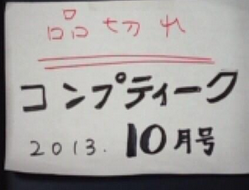 品切れ
コンプティーク
2013. 10月号